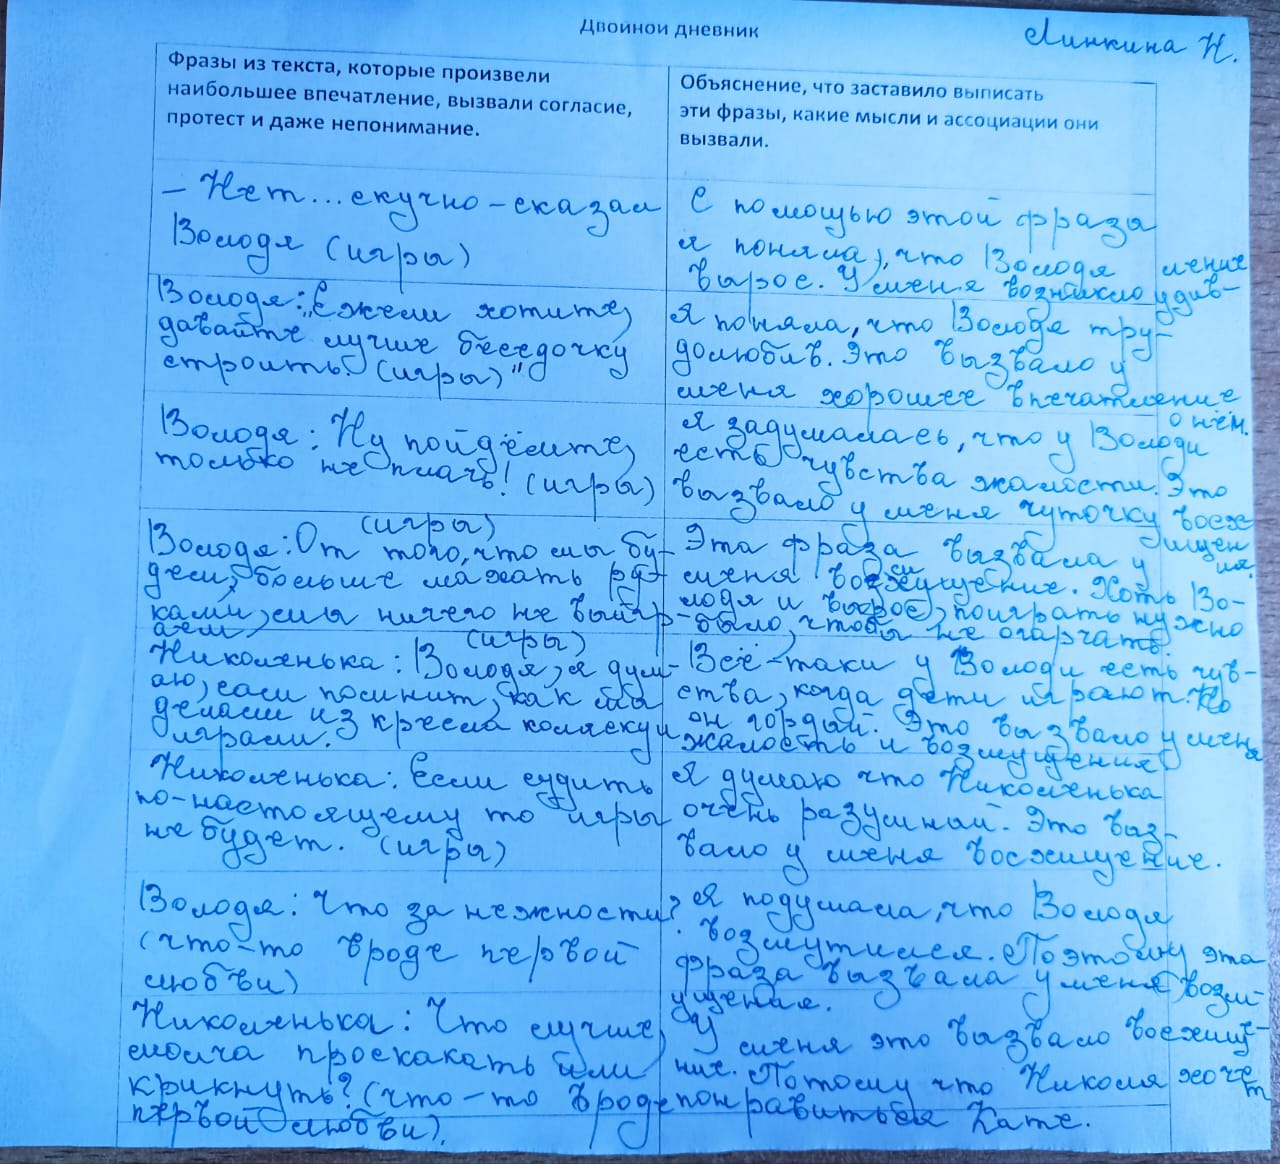 Двойной дневник
Линкина Н.
Фразы из текста, которые произвели
наибольшее впечатление, вызвали согласие,
протест и даже непонимание.
Объяснение, что заставило выписать
эти фразы, какие мысли и ассоциации они
вызвали.
– Нет... скучно – сказал
Володя (игры)
С помощью этой фразы
я поняла, что Володя
вырос. У меня возникло удив-
ление
Володя: „Ежели хотите,
давайте лучше беседочку
строить. (игры)"
Я поняла, что Володя тру-
долюбив. Это вызвало у
меня хорошее впечатление
о нём.
Володя: Ну пойдёмте,
только не плачь! (игры)
Я задумалась, что у Володи
есть чувства жалости. Это
вызвало у меня чуточку восхи
щен
ия.
(игры)
Володя: От того, что мы бу-
дем, больше махать ру-
ками, мы ничего не выигр-
аем
Эта фраза вызвала у
меня возмущение. Хоть Во-
лодя и вырос, поиграть нужно
было, чтобы не огорчать.
(игры)
Николенька: Володя, я дум-
аю, сам помнит, как мы
делали из кресла коляску и
играли.
Всё-таки у Володи есть чув-
ства, когда дети играют. Но
он гордый. Это вызвало у меня
жалость и возмущения
Николенька: Если судить
по-настоящему то игры
не будет. (игры)
Я думаю что Николенька
очень разумный. Это выз-
вало у меня восхищение.
Володя: Что за нежности?
(что-то вроде первой
любви)
Я подумала, что Володя
возмутился. Поэтому эта
фраза вызвала у меня возм-
ущения.
Николенька: Что лучше,
молча проскакать или
крикнуть? (что-то вроде
первой любви).
У меня это вызвало восхище-
ние. Потому что Николя хочет
понравиться Кате.